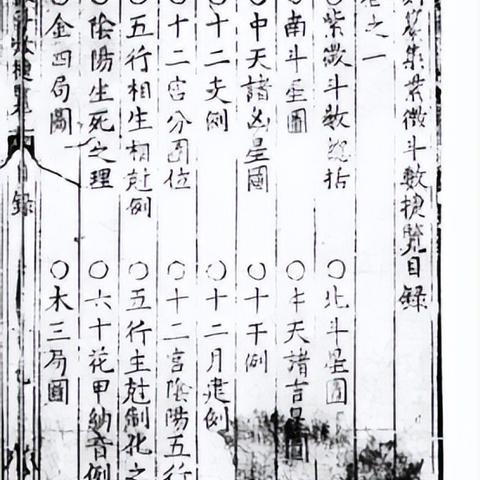 纂集紫微斗數捷覽目錄
卷之一
○紫微斗數總括 ○北斗星圖
○南斗星圖 ○中天諸吉星圖
○中天諸凶星圖 ○十干例
○十二支例 ○十二月建例
○十二宮分圖位 ○十二宮陰陽五行
○五行相生相尅例 ○五行生尅制化之
○陰陽生死之理 ○六十花甲納音例
○金四局圖 ○木三局圖
目錄